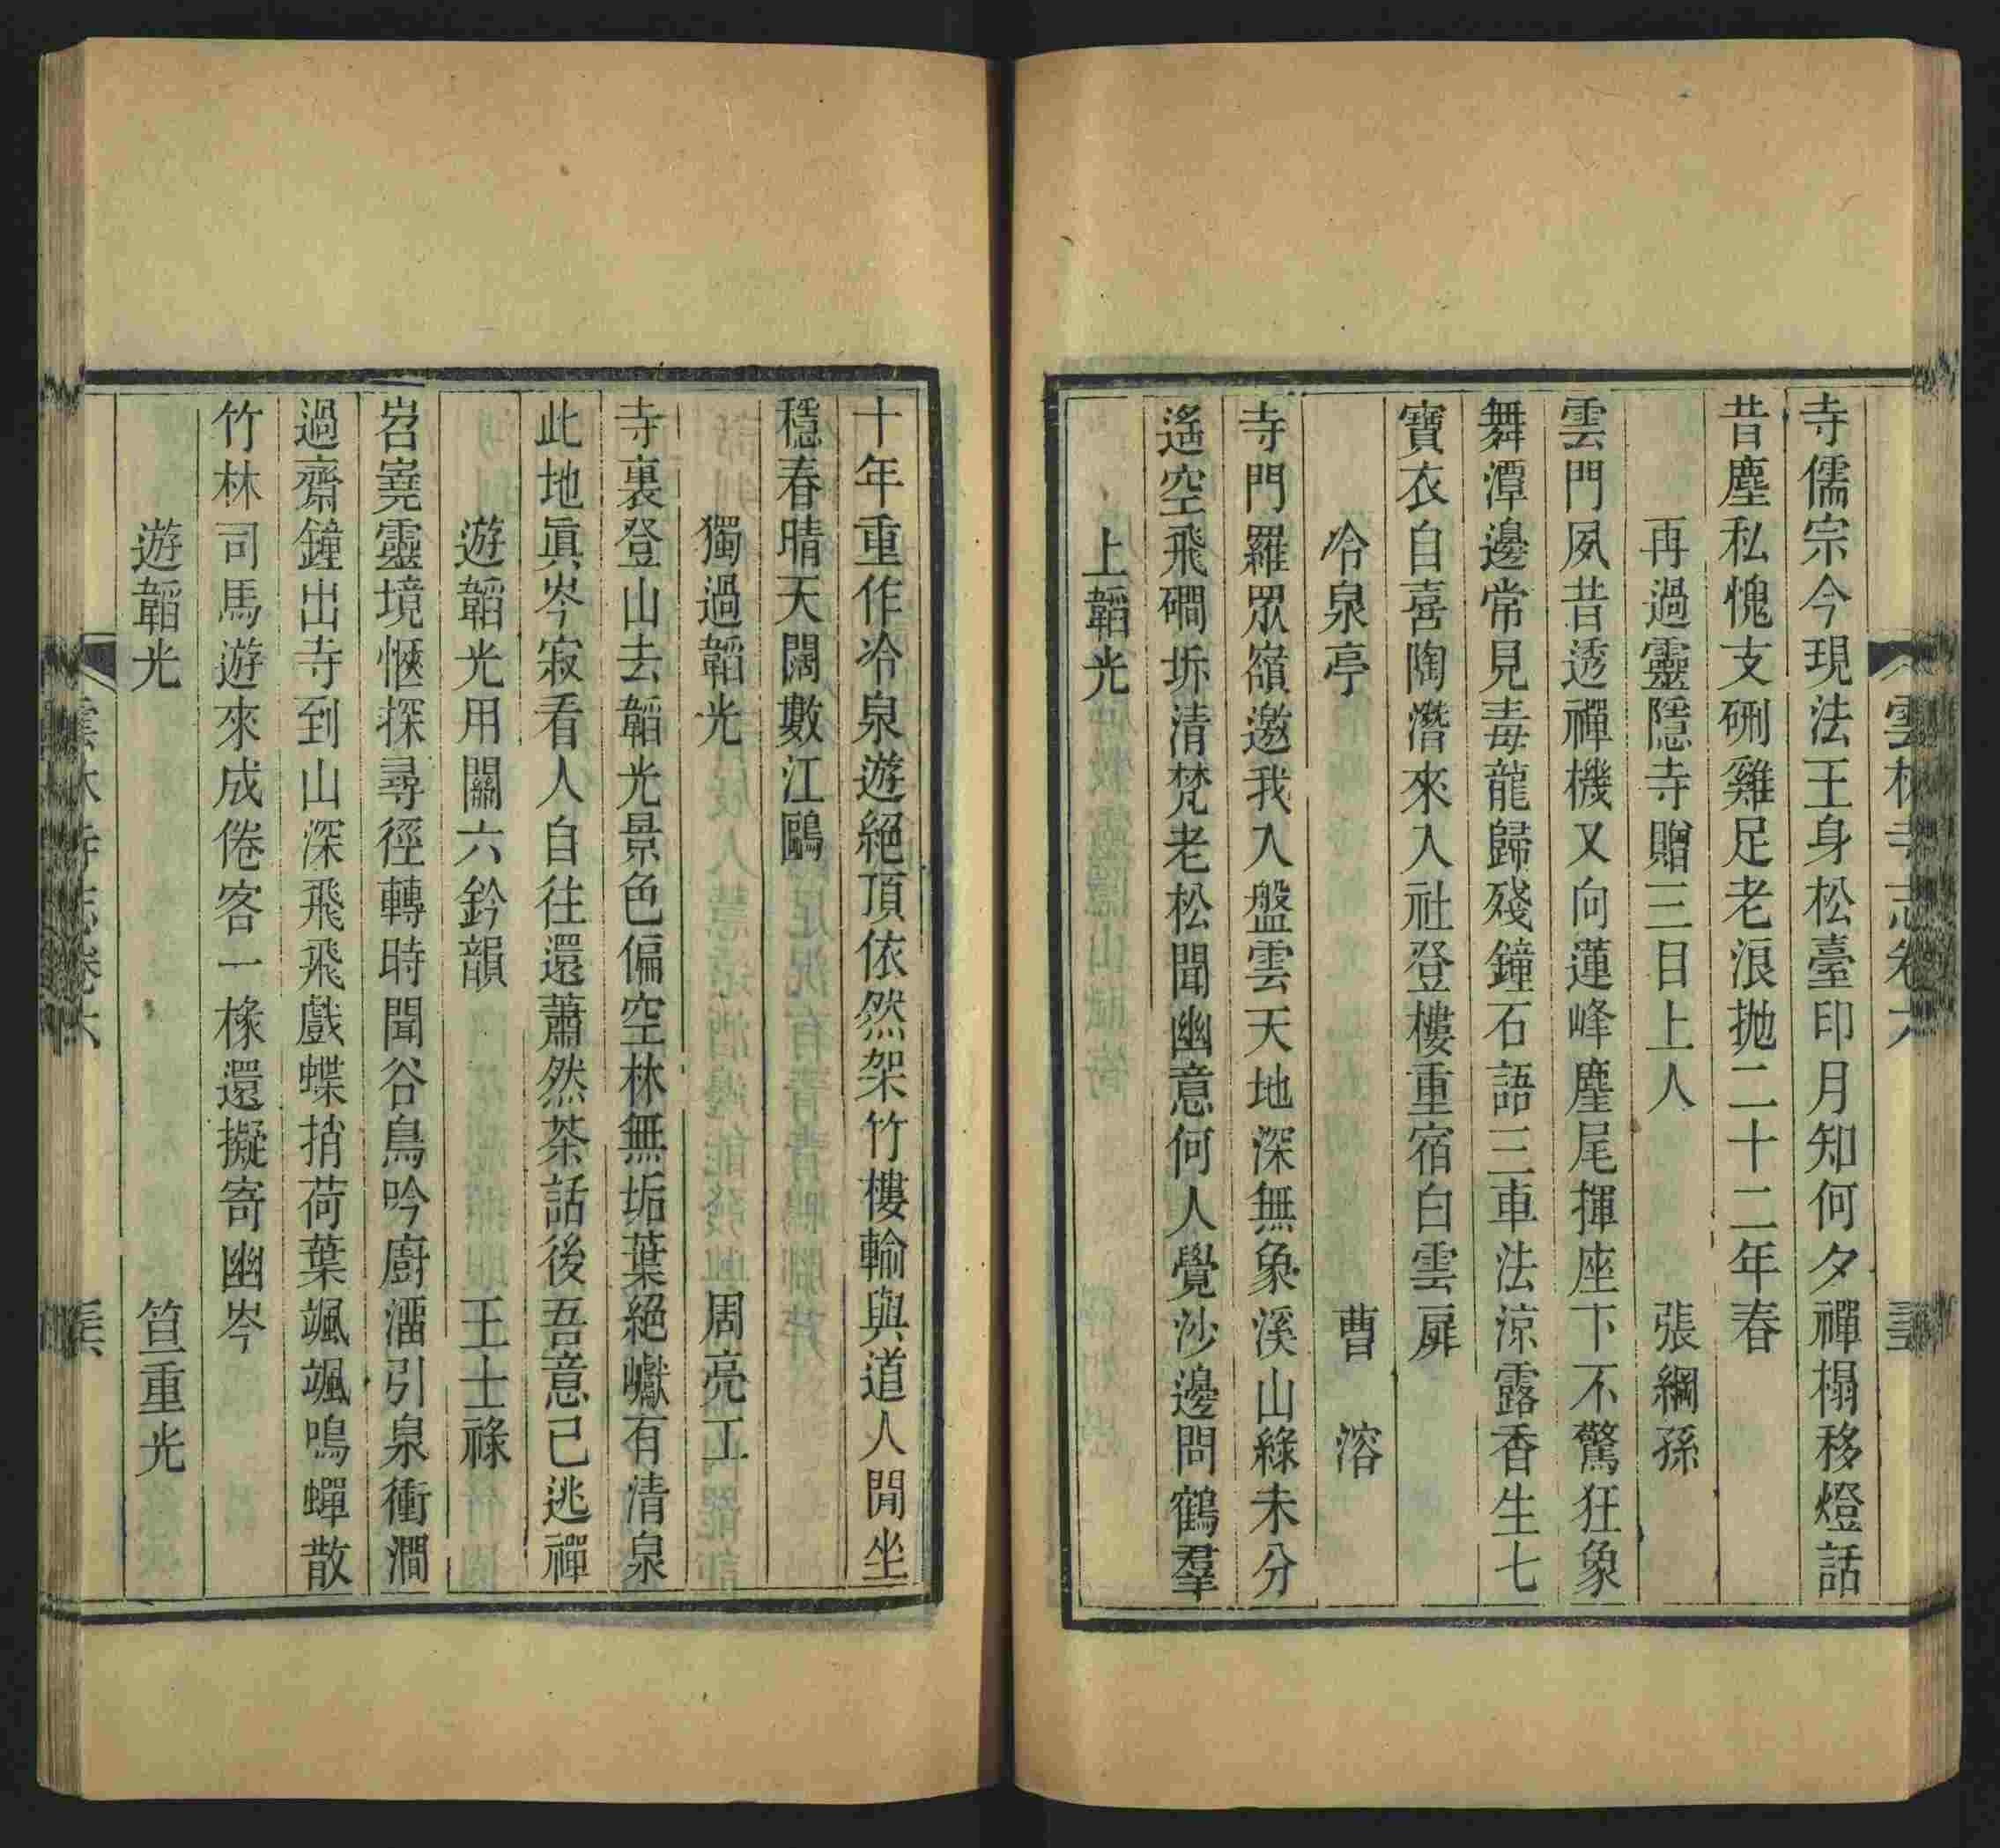 雲林寺志卷六
寺儒宗今現法王身松臺印月知何夕禪榻移燈話
昔塵私愧支硎雞足老浪拋二十二年春
再過靈隱寺贈三目上人 張綱孫
雲門夙昔透禪機又向蓮峰麈尾揮座下不驚狂象
舞潭邊常見毒龍歸殘鐘石語三車法涼露香生七
寶衣自喜陶潛來入社登樓重宿白雲扉
冷泉亭 曹溶
寺門羅眾嶺邀我入盤雲天地深無象溪山綠未分
遙空飛磵坼清梵老松聞幽意何人覺沙邊問鶴羣
上韜光
十年重作冷泉遊絕頂依然架竹樓輸與道人閒坐
穩春晴天闊數江鷗
獨過韜光 周亮工
寺裏登山去韜光景色偏空林無垢葉絕巘有清泉
此地眞岑寂看人自往還蕭然茶話後吾意已逃禪
遊韜光用關六鈐韻 王士祿
岧嶤靈境愜探尋徑轉時聞谷鳥吟廚溜引泉衝澗
過齋鐘出寺到山深飛飛戲蝶捎荷葉颯颯鳴蟬散
竹林司馬遊來成倦客一椽還擬寄幽岑
遊韜光 笪重光
雲林寺志卷六